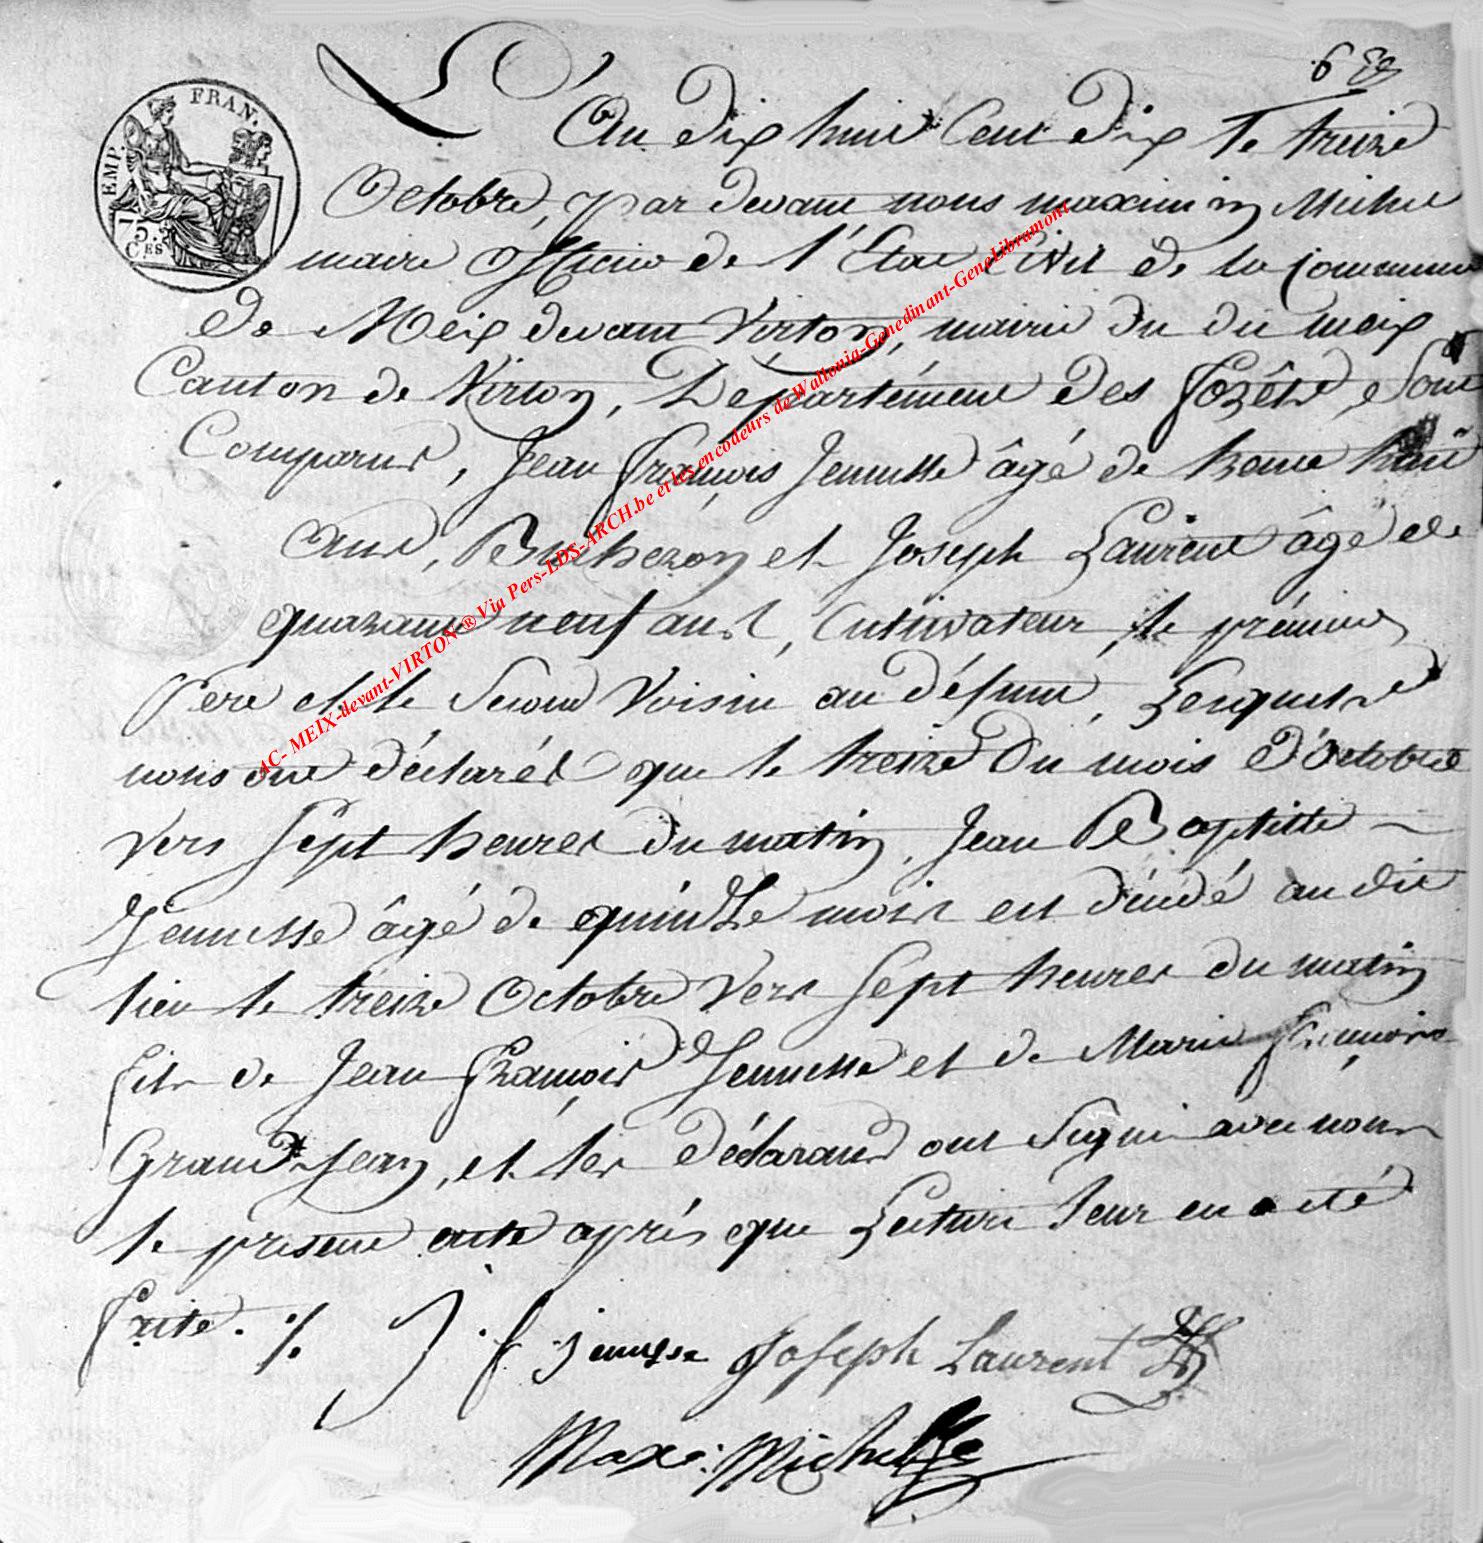 6 e
EMP. FRAN.
75
C.ES
L'An dix huit Cent dix le treize
Octobre, par devant nous maximin Michel
maire Officier de l'Etat Civil de la Commune
de Meix devant Virton, mairie du dit meix
Canton de Virton, Département des Forêts, Sont
Comparus, Jean François Jennesse âgé de trente huit
ans, Bucheron et Joseph Laurent âgé de
quarante neuf ans, Cultivateur, le prémier
Pere et le Second Voisin au défunt, Lesquels
nous ont déclarés que le treize du mois d'Octobre
vers Sept heures du matin, Jean Baptitte
Jennesse âgé de quinze mois est décidé au dit
lieu le treize Octobre vers Sept heures du matin
fils de Jean François Jennesse et de Marie Françoise
Grand-jean, et les déclarans ont Signé avec nous
le présent acte après que Lecture leur en a été
faite. %
j f jennesse Joseph Laurent
Max: Michel
AC- MEIX-devant-VIRTON ® Via Pers-LDS-ARCH.be et les encodeurs de Wallonia-Genedinant-GeneLibramont